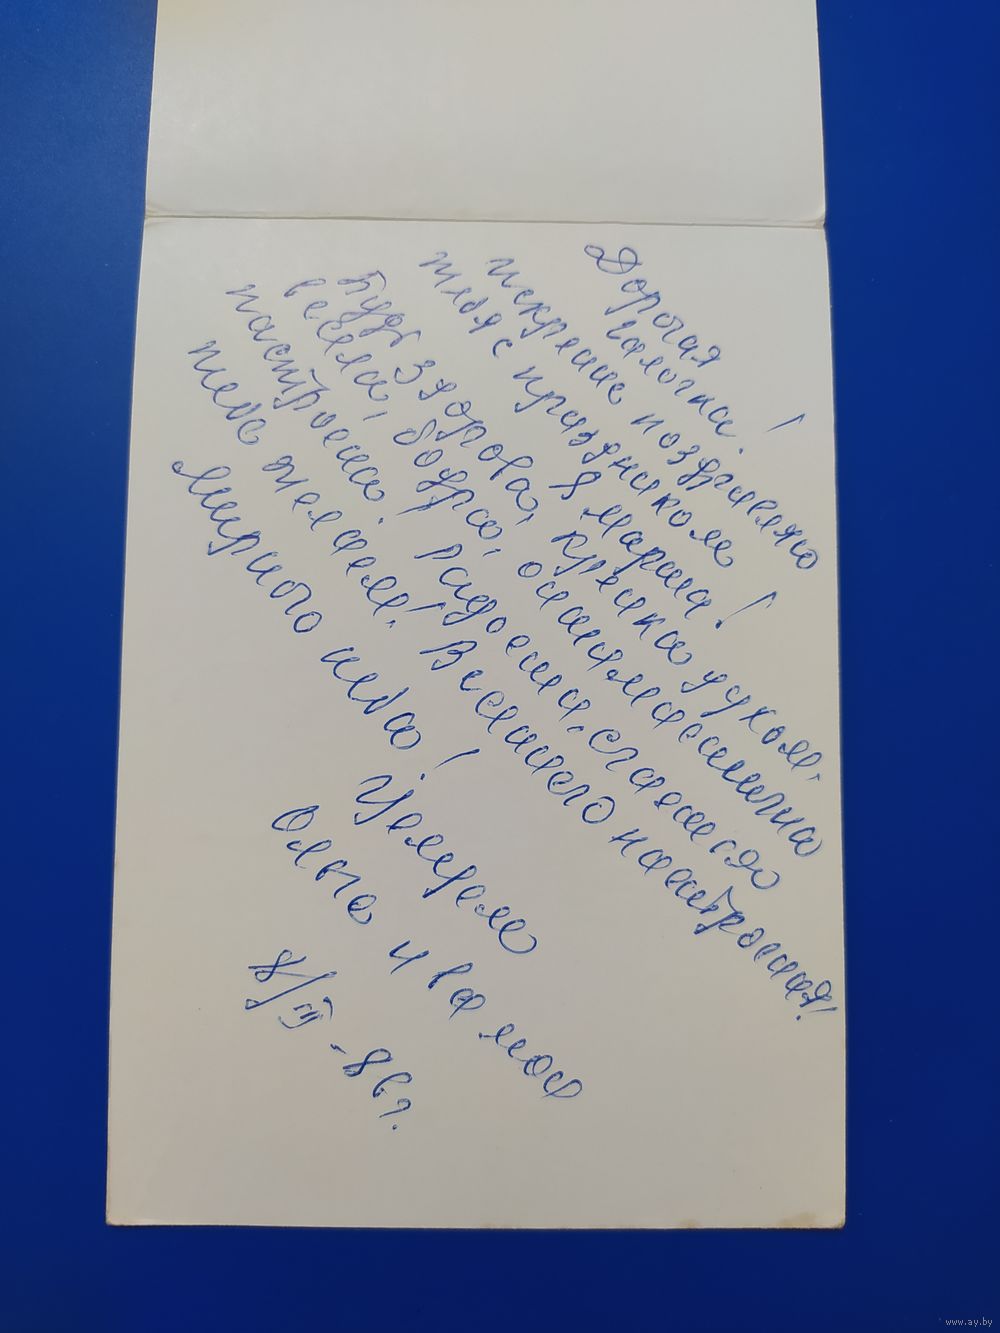 Дорогая
Галочка!
Искренне поздравляю
тебя с праздником
8 Марта!
Будь здорова, крепка духом,
весела, бодра, оптимистично
настроена. Радости, счастья
тебе желаем! Весеннего настроения!
Мирного неба!
Целуем
Ольга и
8/III-86г.
www.ay.by